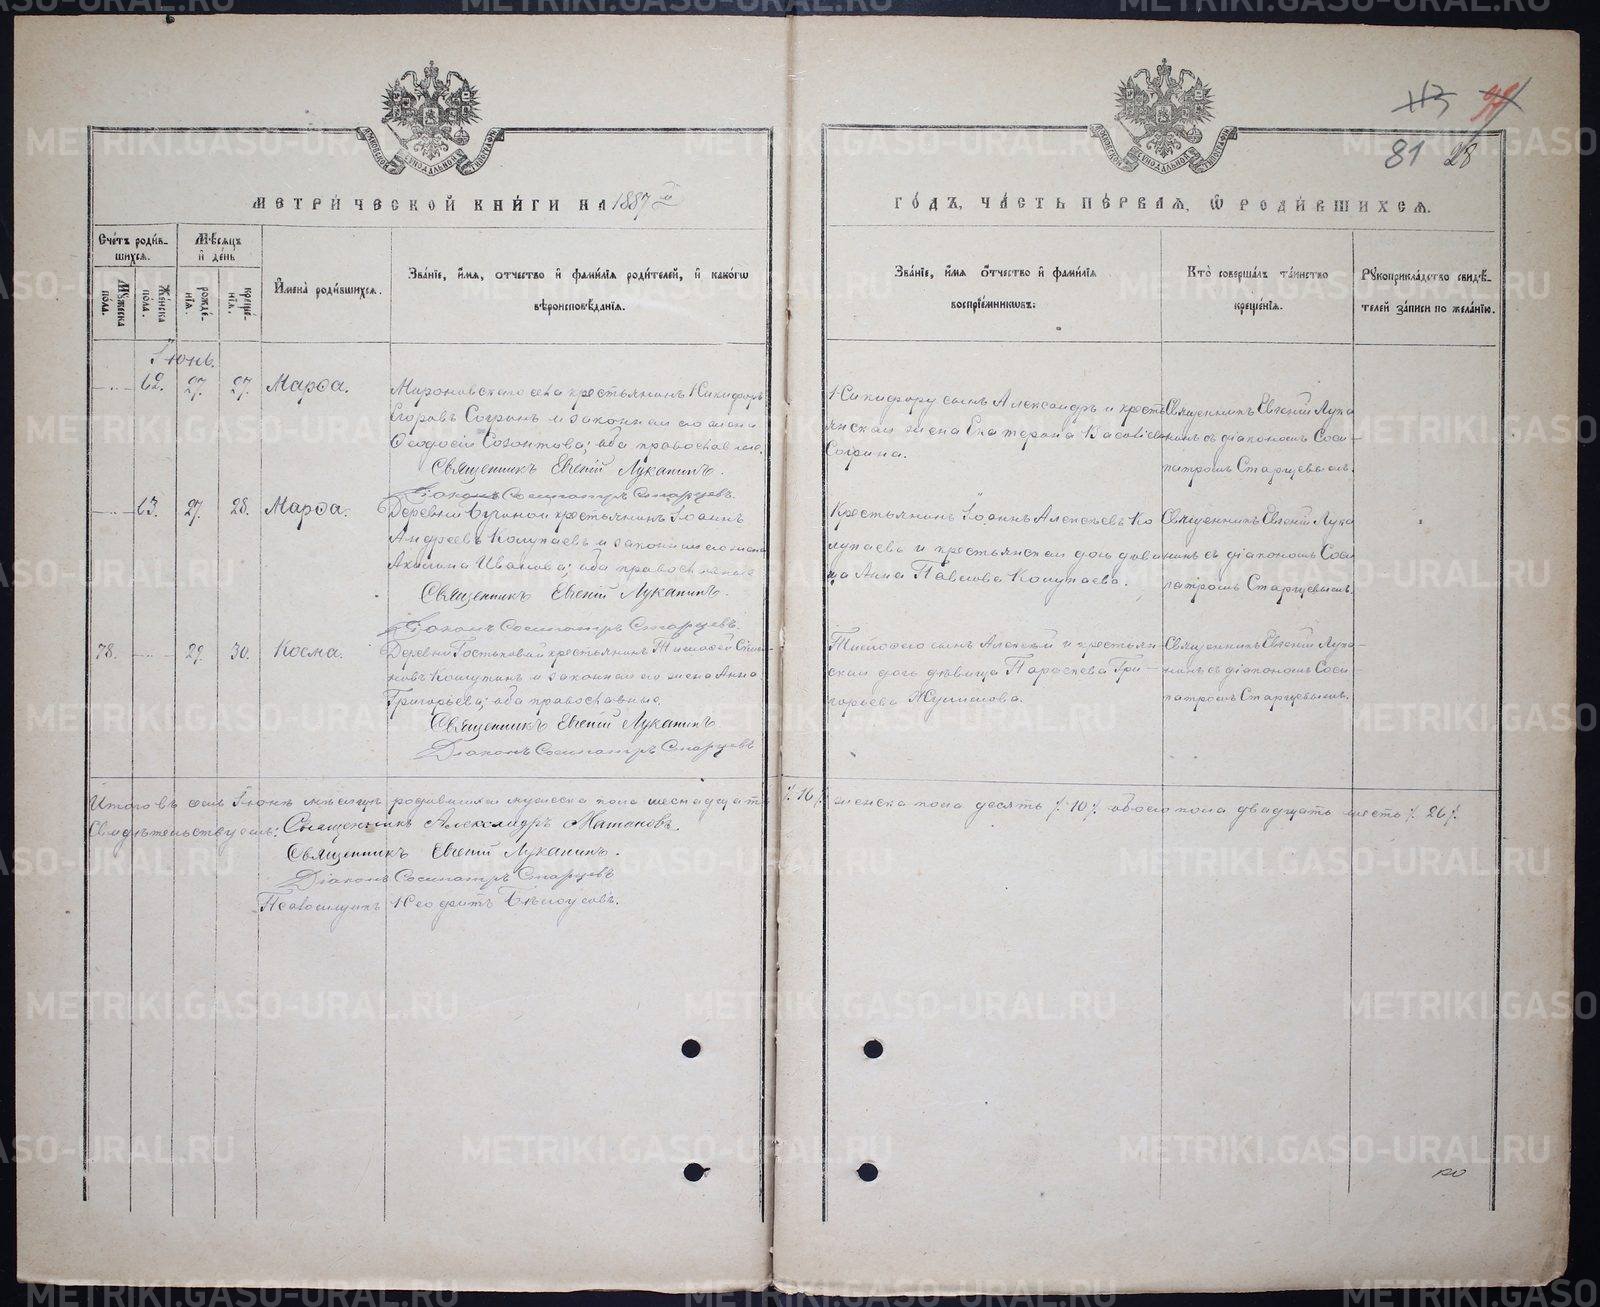 113 
81 28
МЕТРИ́ЧЕСКОЙ КНИ́ГИ НА 1887 й
ГО́ДЪ, ЧА́СТЬ ПЕ́РВАЯ, Ѡ РОДИ́ВШИХСЯ.
Сче́тъ роди́в-
шихся.
Мꙋжеска пола.
Же́нска пола.
Мѣ́сяцъ
и̂ де́нь
рожде́-
нія.
креще́-
нія.
И̂мена̀ роди́вшихся.
Зва́нїе, и̂мя, о́тчество и̂ фами́лїя роди́телей, и̂ како́гѡ
вѣроисповѣ́данїя.
Зва́нїе, и̂мя о́тчество и̂ фами́лїя
воспрїе́мникѡвъ.
Кто̀ соверша́лъ та́инство
креще́нїя.
Рꙋкоприкла́дство свидѣ́-
телей за́писи по жела́нїю.
Іюнь.
62. 27. 27. Марѳа.
Мироновскаго села крестьянинъ Никифоръ
Егоровъ Согринъ и законная его жена
Ѳеодосія Созонтова; оба православные.
Священникъ Евгеній Луканинъ.
Діаконъ Сосипатръ Старцевъ.
Никифору сынъ Александръ и кресть
янская жена Екатерина
Согрина.
Священникъ Евгеній Лука
нинъ съ діакономъ Соси-
патромъ Старцевымъ.
63. 27. 28. Марѳа.
Деревни крестьянинъ Іоаннъ
Андреевъ Колупаевъ и законная его жена
Акилина Иванова; оба православные
Священникъ Евгеній Луканинъ.
Діаконъ Сосипатръ Старцевъ.
Крестьянинъ Іоаннъ Алексѣевъ Ко
лупаевъ и крестьянская дочь дѣви
ца Анна Павлова Колупаева.
Священникъ Евгеній Лука
нинъ съ діакономъ Соси
патромъ Старцевымъ.
78. 29. 30. Косма.
Деревни крестьянинъ Тимофей
и законная его жена Анна
Григорьева; оба православные.
Священникъ Евгеній Луканинъ
Діаконъ Сосипатръ Старцевъ
Тимофею сынъ Алексѣй и крестьян-
ская дочь дѣвица Параскева Гри-
горьева
Священникъ Евгеній Лука-
нинъ съ діакономъ Соси-
патромъ Старцевымъ.
Итого въ семъ Іюнѣ мѣсяцѣ родившихся мужеска пола шестнадцать /. 16 /. женска пола десять /. 10 /. обоего пола двадцать шесть /. 26 /.
Свидѣтельствуемъ: Священникъ Александръ
Священникъ Евгеній Луканинъ.
Діаконъ Сосипатръ Старцевъ
Псаломщикъ Неофитъ Бѣлоусовъ.
METRIKI.GASO-URAL.RU